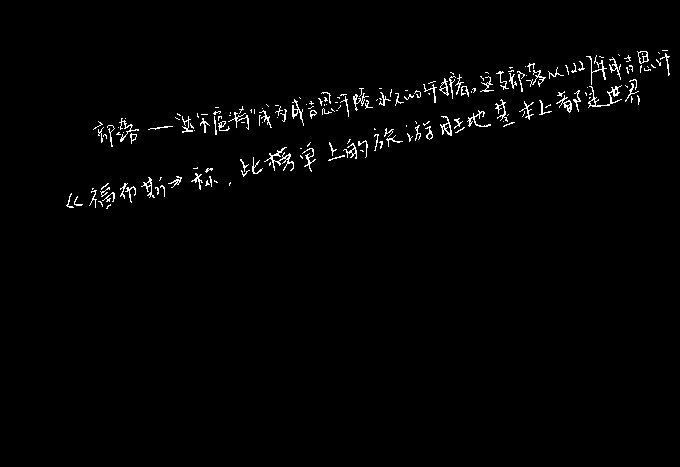 部落——达尔扈特"成为成吉思汗陵永久的守护者。这支部落从1227年成吉思汗
《福布斯》称，此榜单上的旅游目的地基本上都是世界